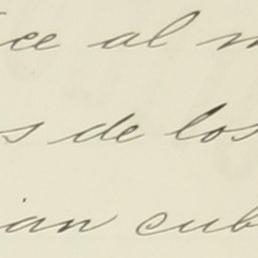 ce al m
s de los
ian cub